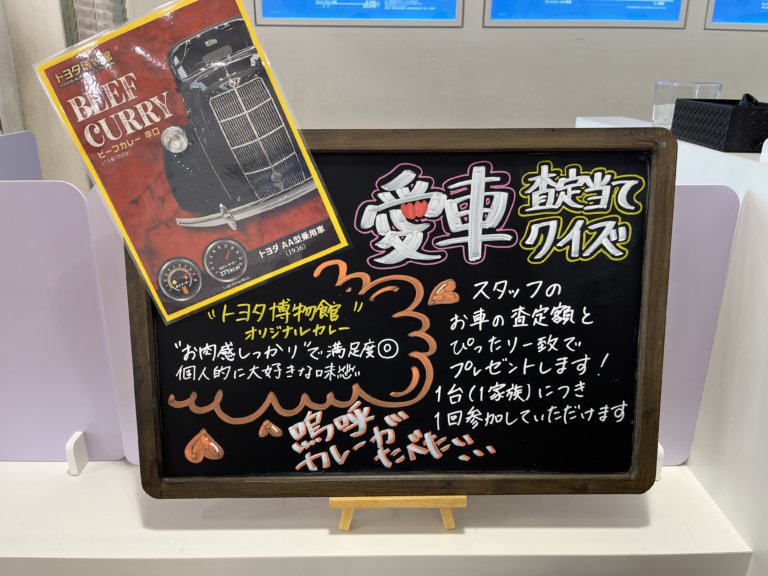 トヨタ博物館
BEEF
CURRY
ビーフカレー 辛口
(1人前/200g)
トヨタ AA型乗用車
(1936)
271kcal
愛車 査定当て
クイズ
"トヨタ博物館"
オリジナルカレー
"お肉感しっかり"で満足度◎
個人的に大好きな味
スタッフの
お車の査定額と
ぴったり一致で
プレゼントします!
1台(1家族)につき
1回参加していただけます
嗚呼
カレーが
たべたい...